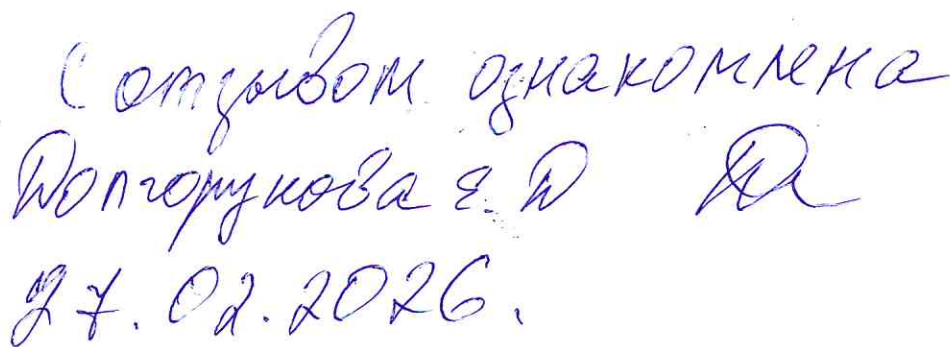 С отзывом ознакомлена
Долгорукова Е.Д
27.02.2026.